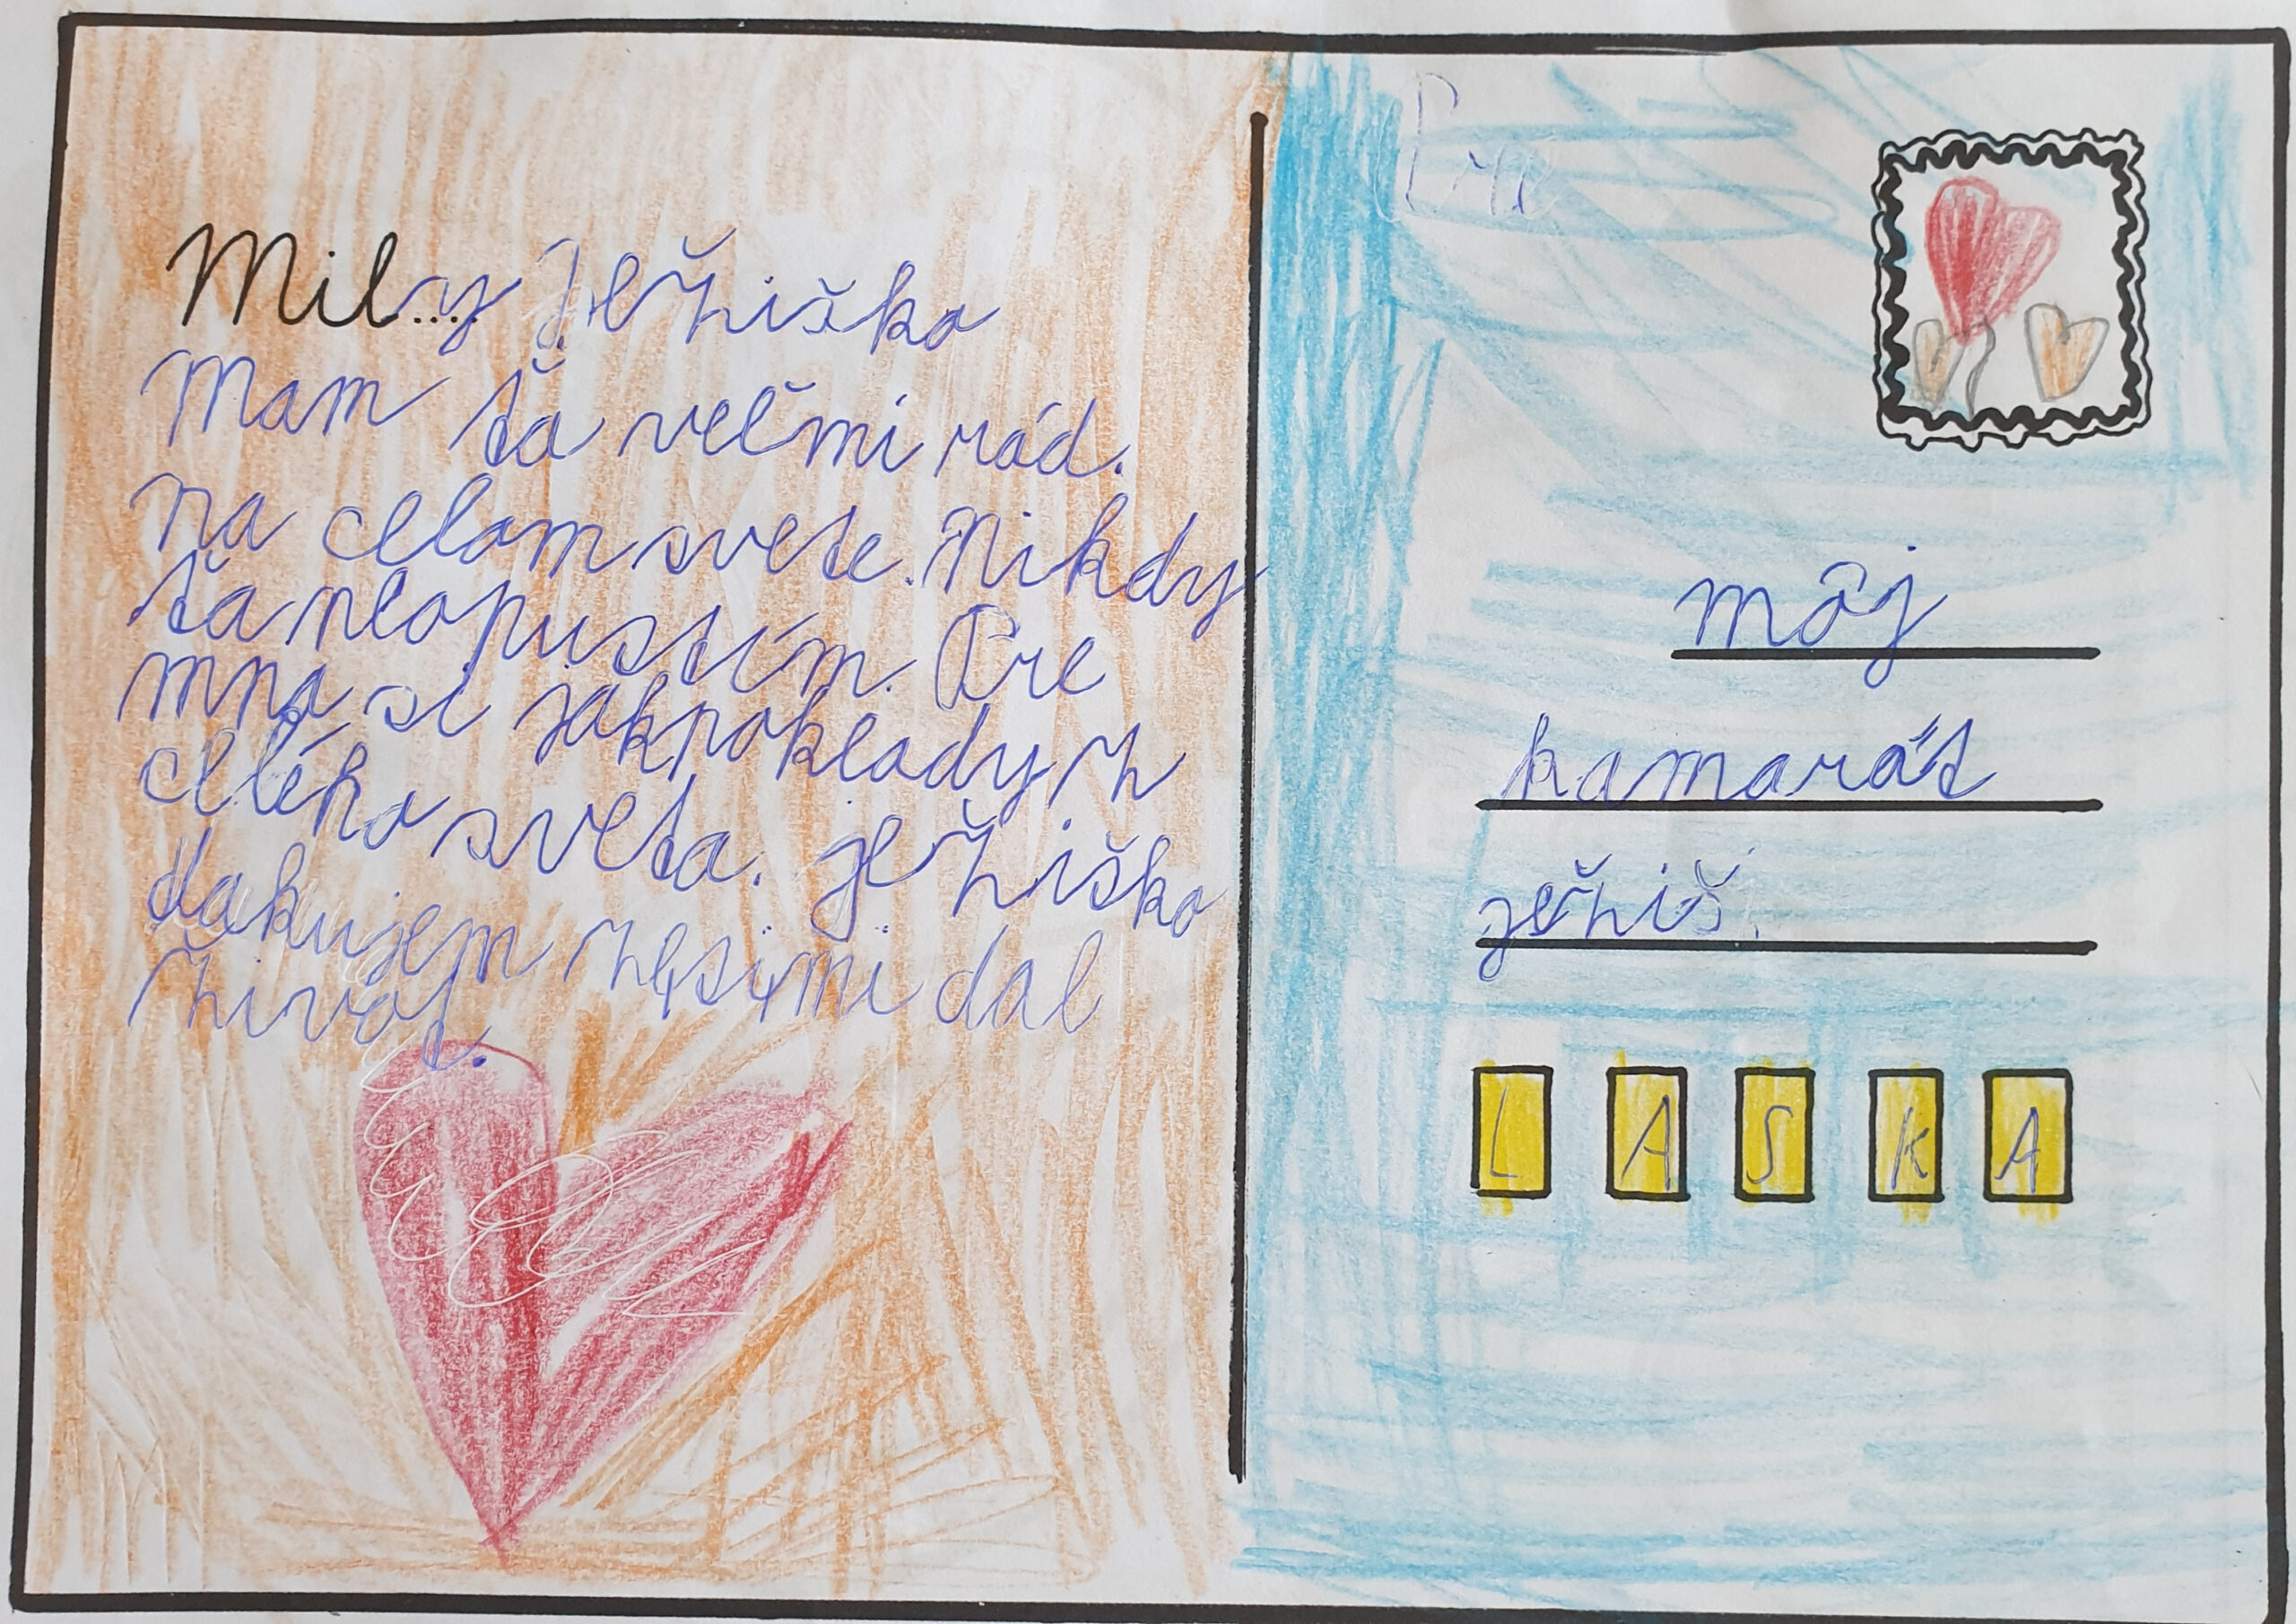 Mil....y Ježiško
Mam ťa veľmi rád.
Na celom svete. Nikdy
ťa neopustím. Pre
mna si jak poklady z
celého sveta. ježiško
dakujem že si mi dal
život.
Pre
môj
kamarát
ježiš.
L A S K A